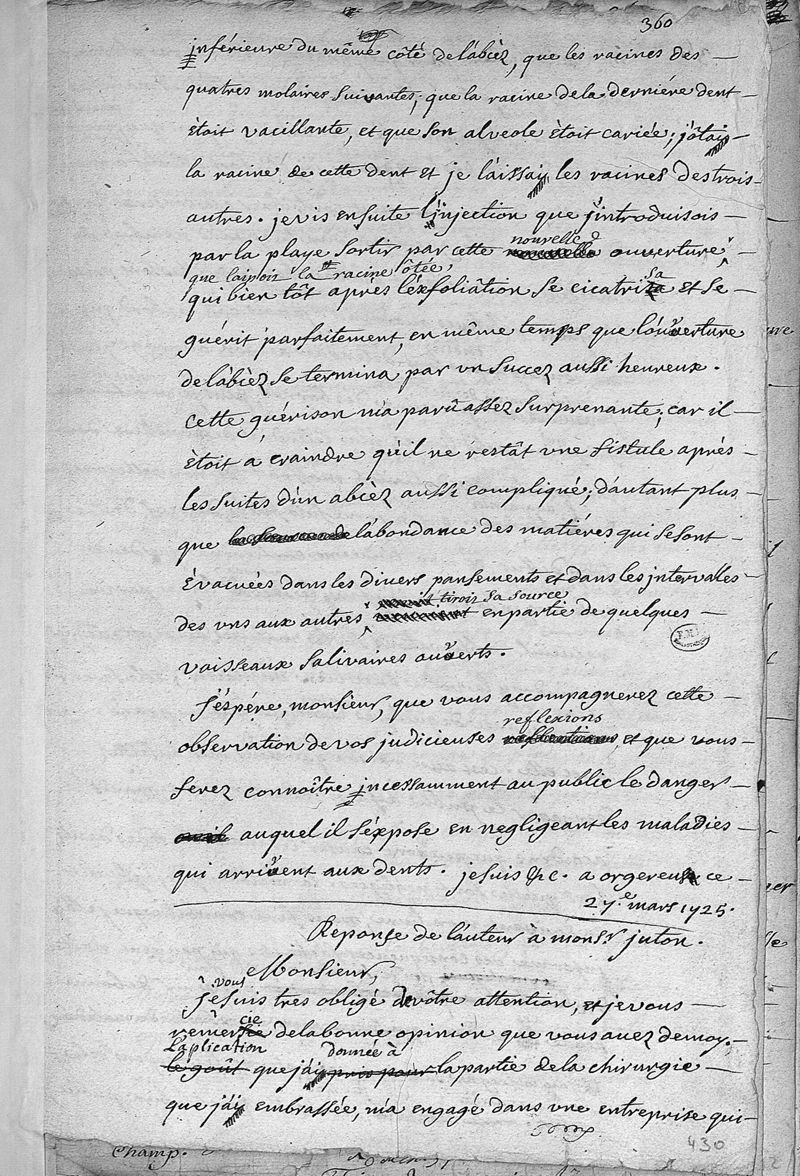 360
inférieure du même côté de l'abcèz, que les racines des
quatres molaires suivantes; que la racine de la derniére dent
ètoit vacillante, et que son alveole ètoit cariée; j'ôtai
la racine de cette dent et je laissai les racines des trois
autres. je vis ensuite l'injection que j'introduisois
par la playe sortir par cette nouvelle ouverture
que laissoit la racine ôtée,
qui bien tôt après l'éxfoliâtion se cicatrisa et se
guérit parfaitement, en même temps que l'ouverture
de l'abcèz se termina par un succez aussi heureux.
Cette guérison m'a parû assez surprenante; car il
ètoit a craindre qu'il ne restât une fistule après
les suites d'un abcèz aussi compliqué; d'autant plus
que l'abondance des matiéres qui se sont
évacuées dans les divers pansements et dans les intervalles
tiroit sa source
des uns aux autres en partie de quelques
vaisseaux salivaires ouverts.
J'éspére, monsieur, que vous accompagnerez cette
reflexions
observation de vos judicieuses, et que vous
ferez connoître incessamment au public le danger
auquel il s'éxpose en negligeant les maladies
qui arrivent aux dents. je suis &c. a orgereux ce
27.e mars 1725.
Reponse de l'auteur à mons.r juton.
Monsieur,
vous
je suis tres obligé de vôtre attention, et je vous
cie
remer de la bonne opinion que vous avez de moy.
L'aplication donnée à
le goût que j'ai pris pour la partie de la chirurgie
que j'ai embrassée, m'a engagé dans une entreprise qui
Champ.
430